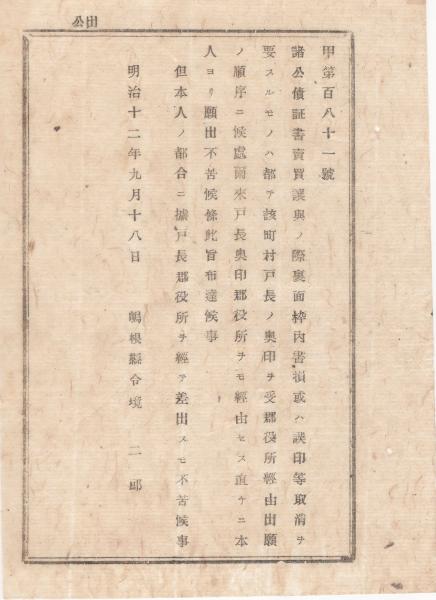 公田
甲第百八十一號
諸公債証書賣買讓與ノ際裏面枠內書損或ハ誤印等取消ヲ
要スルモノハ都テ該町村戸長ノ奧印ヲ受郡役所經由出願
ノ順序ニ候處爾來戸長奧印郡役所ヲモ經由セス直チニ本
人ヨリ願出不苦候條此旨布達候事
但本人ノ都合ニ據戸長郡役所ヲ經テ差出スモ不苦候事
明治十二年九月十八日 嶋根縣令境 二郎